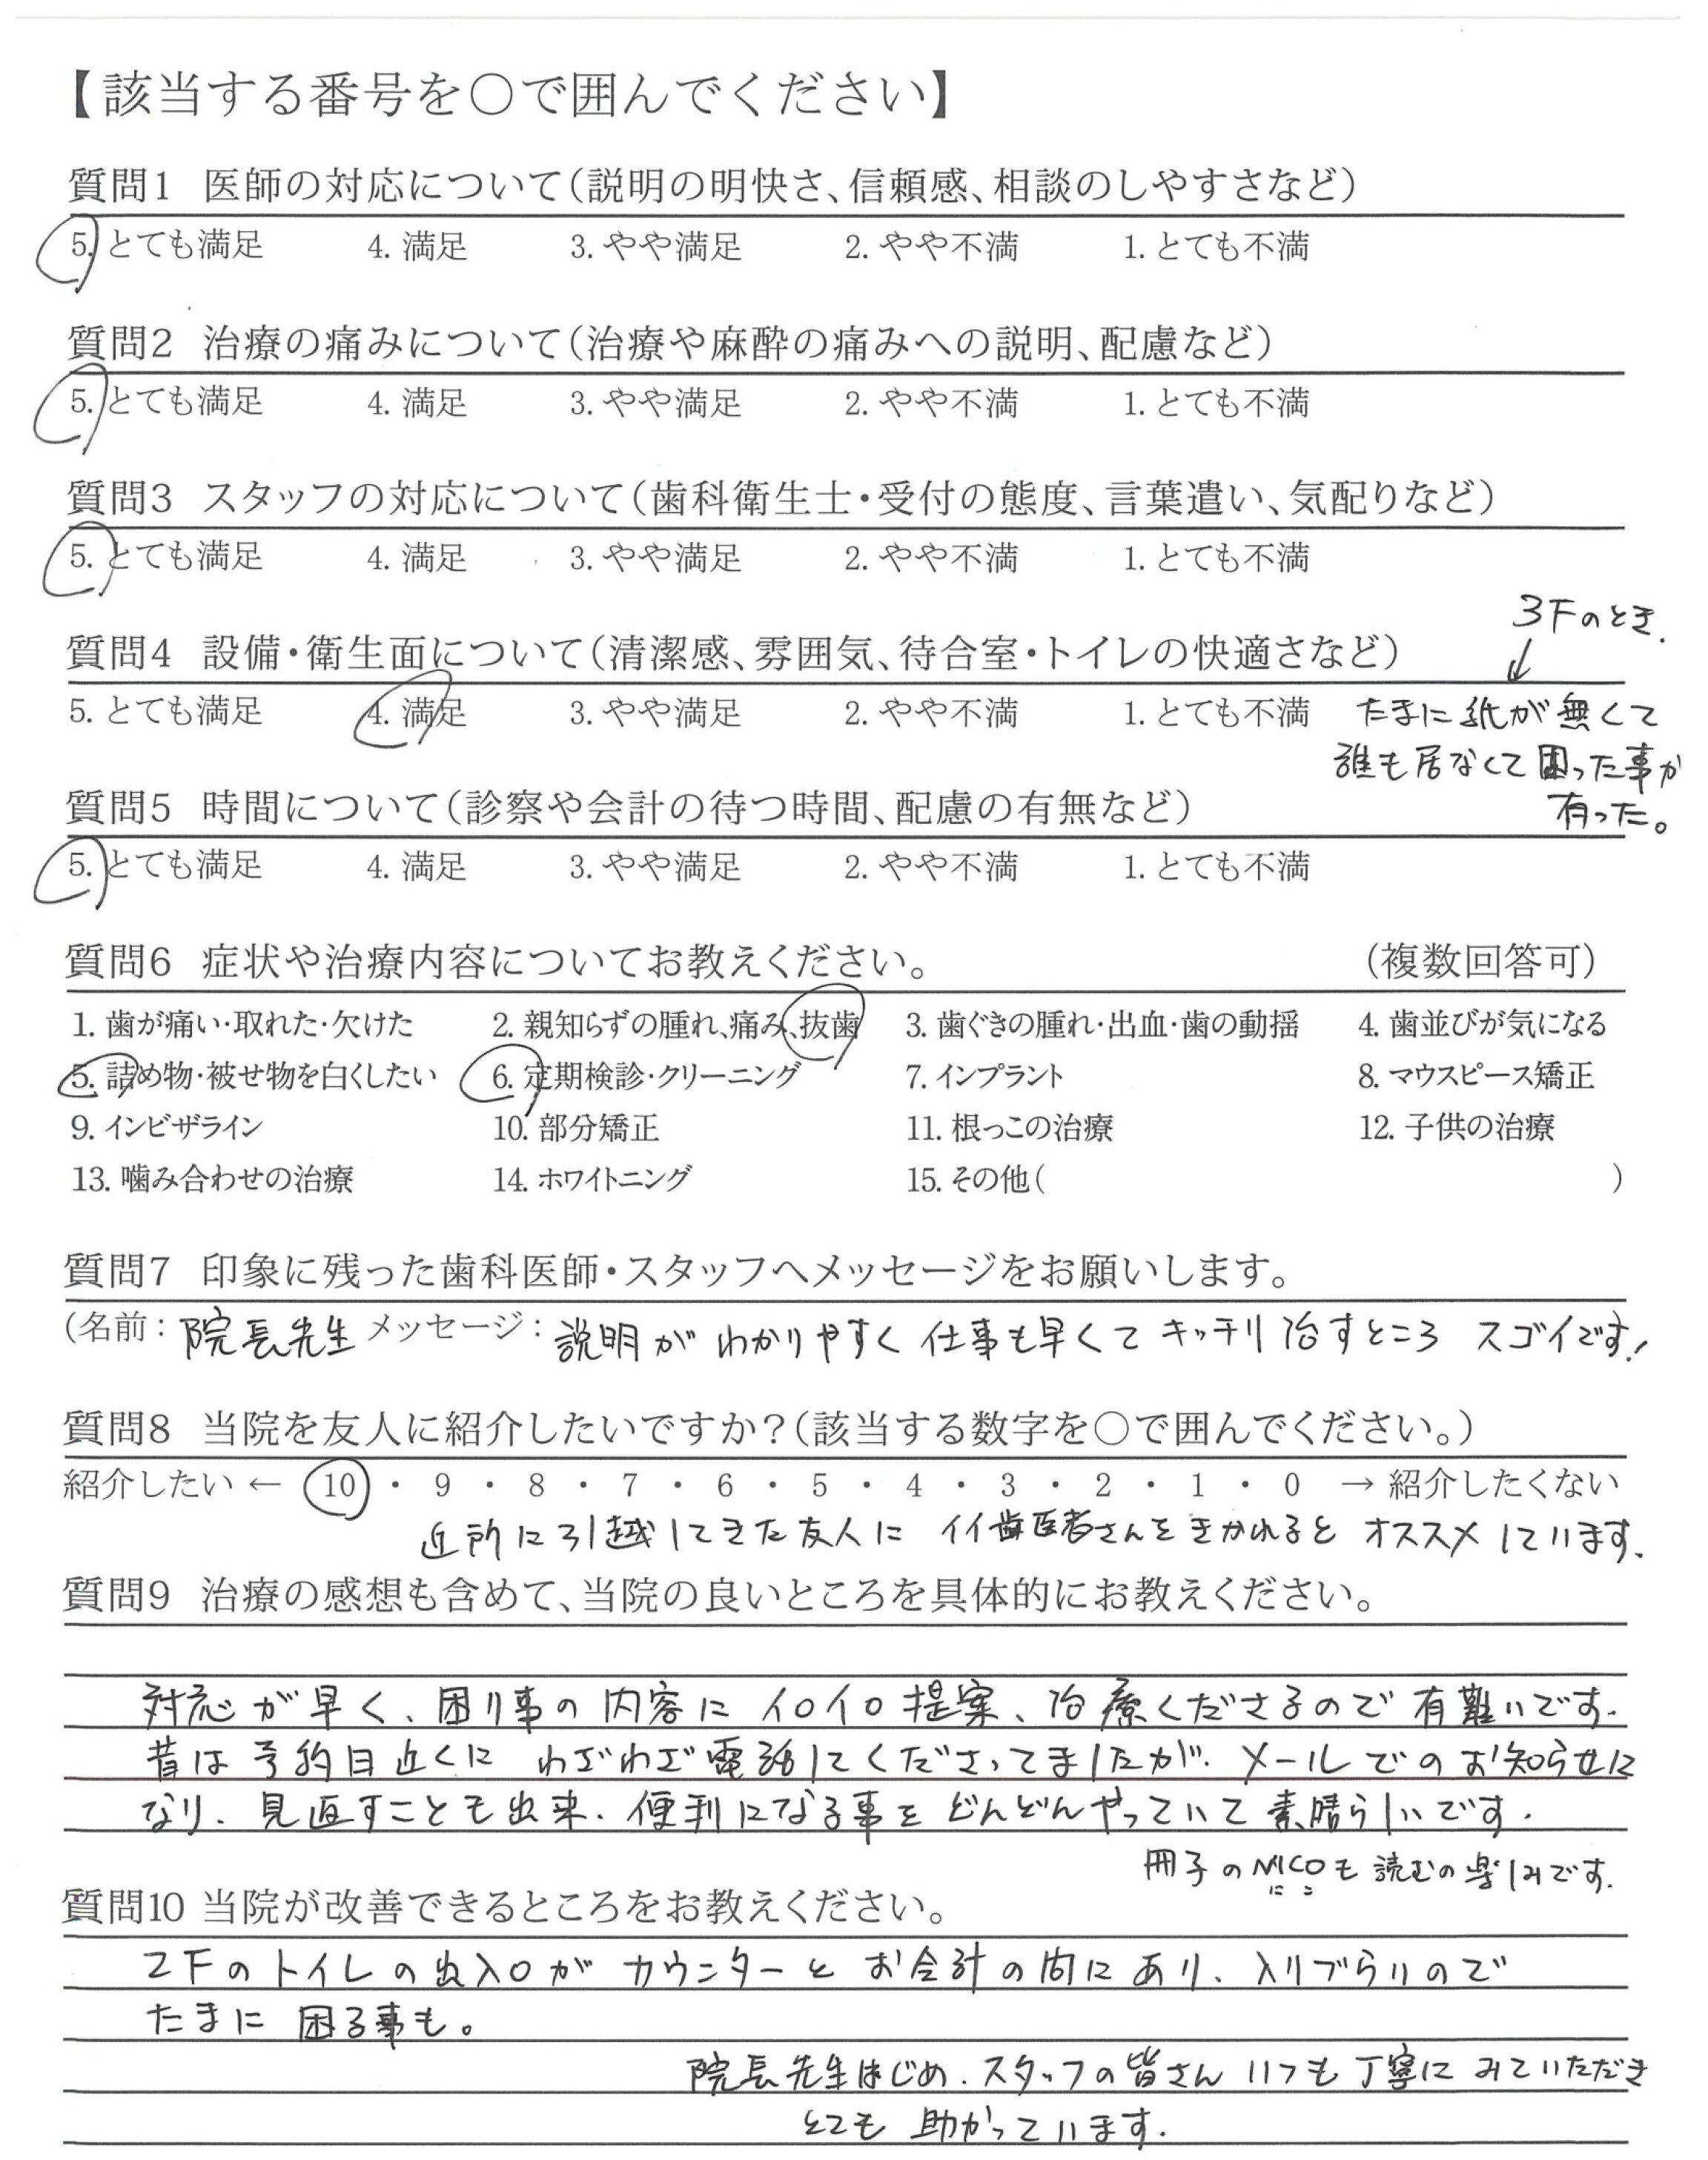 【該当する番号を○で囲んでください】
質問1 医師の対応について(説明の明快さ、信頼感、相談のしやすさなど)
5. とても満足 4. 満足 3. やや満足 2. やや不満 1. とても不満
質問2 治療の痛みについて(治療や麻酔の痛みへの説明、配慮など)
5. とても満足 4. 満足 3. やや満足 2. やや不満 1. とても不満
質問3 スタッフの対応について(歯科衛生士・受付の態度、言葉遣い、気配りなど)
5. とても満足 4. 満足 3. やや満足 2. やや不満 1. とても不満
3Fのとき.
↓
質問4 設備・衛生面について(清潔感、雰囲気、待合室・トイレの快適さなど)
5. とても満足 4. 満足 3. やや満足 2. やや不満 1. とても不満
たまに紙が無くて
誰も居なくて困った事が
有った。
質問5 時間について(診察や会計の待つ時間、配慮の有無など)
5. とても満足 4. 満足 3. やや満足 2. やや不満 1. とても不満
質問6 症状や治療内容についてお教えください。 (複数回答可)
1. 歯が痛い・取れた・欠けた 2. 親知らずの腫れ、痛み、抜歯 3. 歯ぐきの腫れ・出血・歯の動揺 4. 歯並びが気になる
5. 詰め物・被せ物を白くしたい 6. 定期検診・クリーニング 7. インプラント 8. マウスピース矯正
9. インビザライン 10. 部分矯正 11. 根っこの治療 12. 子供の治療
13. 噛み合わせの治療 14. ホワイトニング 15. その他( )
質問7 印象に残った歯科医師・スタッフへメッセージをお願いします。
(名前: 院長先生 メッセージ: 説明がわかりやすく仕事も早くてキッチリ治すところ スゴイです!
質問8 当院を友人に紹介したいですか?(該当する数字を○で囲んでください。)
紹介したい ← 10 ・ 9 ・ 8 ・ 7 ・ 6 ・ 5 ・ 4 ・ 3 ・ 2 ・ 1 ・ 0 → 紹介したくない
近所に引越してきた友人に イイ歯医者さんをきかれると オススメしています.
質問9 治療の感想も含めて、当院の良いところを具体的にお教えください。
対応が早く、困り事の内容にイロイロ提案、治療くださるので有難いです.
昔は予約日近くに わざわざ電話してくださってましたが、メールでのお知らせに
なり、見直すことも出来、便利になる事をどんどんやっていて素晴らしいです.
冊子のNICOも読むの楽しみです.
にこ
質問10 当院が改善できるところをお教えください。
2Fのトイレの出入口がカウンターとお会計の間にあり、入りづらいので
たまに困る事も。
院長先生はじめ、スタッフの皆さんいつも丁寧にみていただき
とても助かっています.